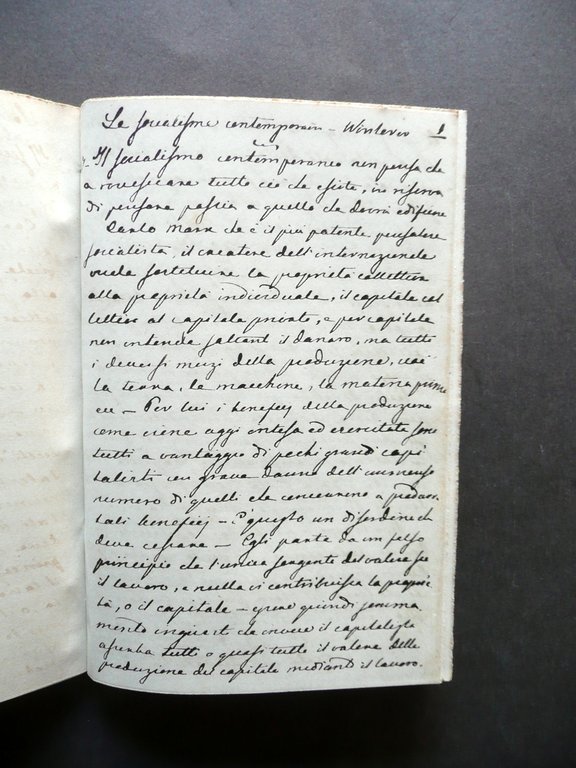 Le socialisme contemporain – Winterer 1
Il socialismo contemporaneo non pensa che
a rovesciare tutto ciò che esiste, in riserva
di pensare poscia a quello che dovrà edificare
Carlo Marx che è il più potente pensatore
socialista, il creatore dell'internazionale
vuole sostituire la proprietà collettiva
alla proprietà individuale, il capitale col
lettivo al capitale privato, e per capitale
non intende soltant il danaro, ma tutti
i diversi mezi della produzione, cioè
la terra, le macchine, la materia prima
ecc – Per lui i beneficj della produzione
come viene oggi intesa ed esercitata sono
tutti a vantaggio di pochi grandi capi
talisti con grave danno dell'immenso
numero di quelli che concorrono a produr
tali beneficj – E' questo un disordine che
deve cessare – Egli parte da un falso
principio che l'unica sorgente del valore sia
il lavoro, e nulla vi contribuisca la proprie
tà, o il capitale – crede quindi
che invece il capitalista
assorba tutto o quasi tutto il valore della
produzione del capitale mediante il lavoro.